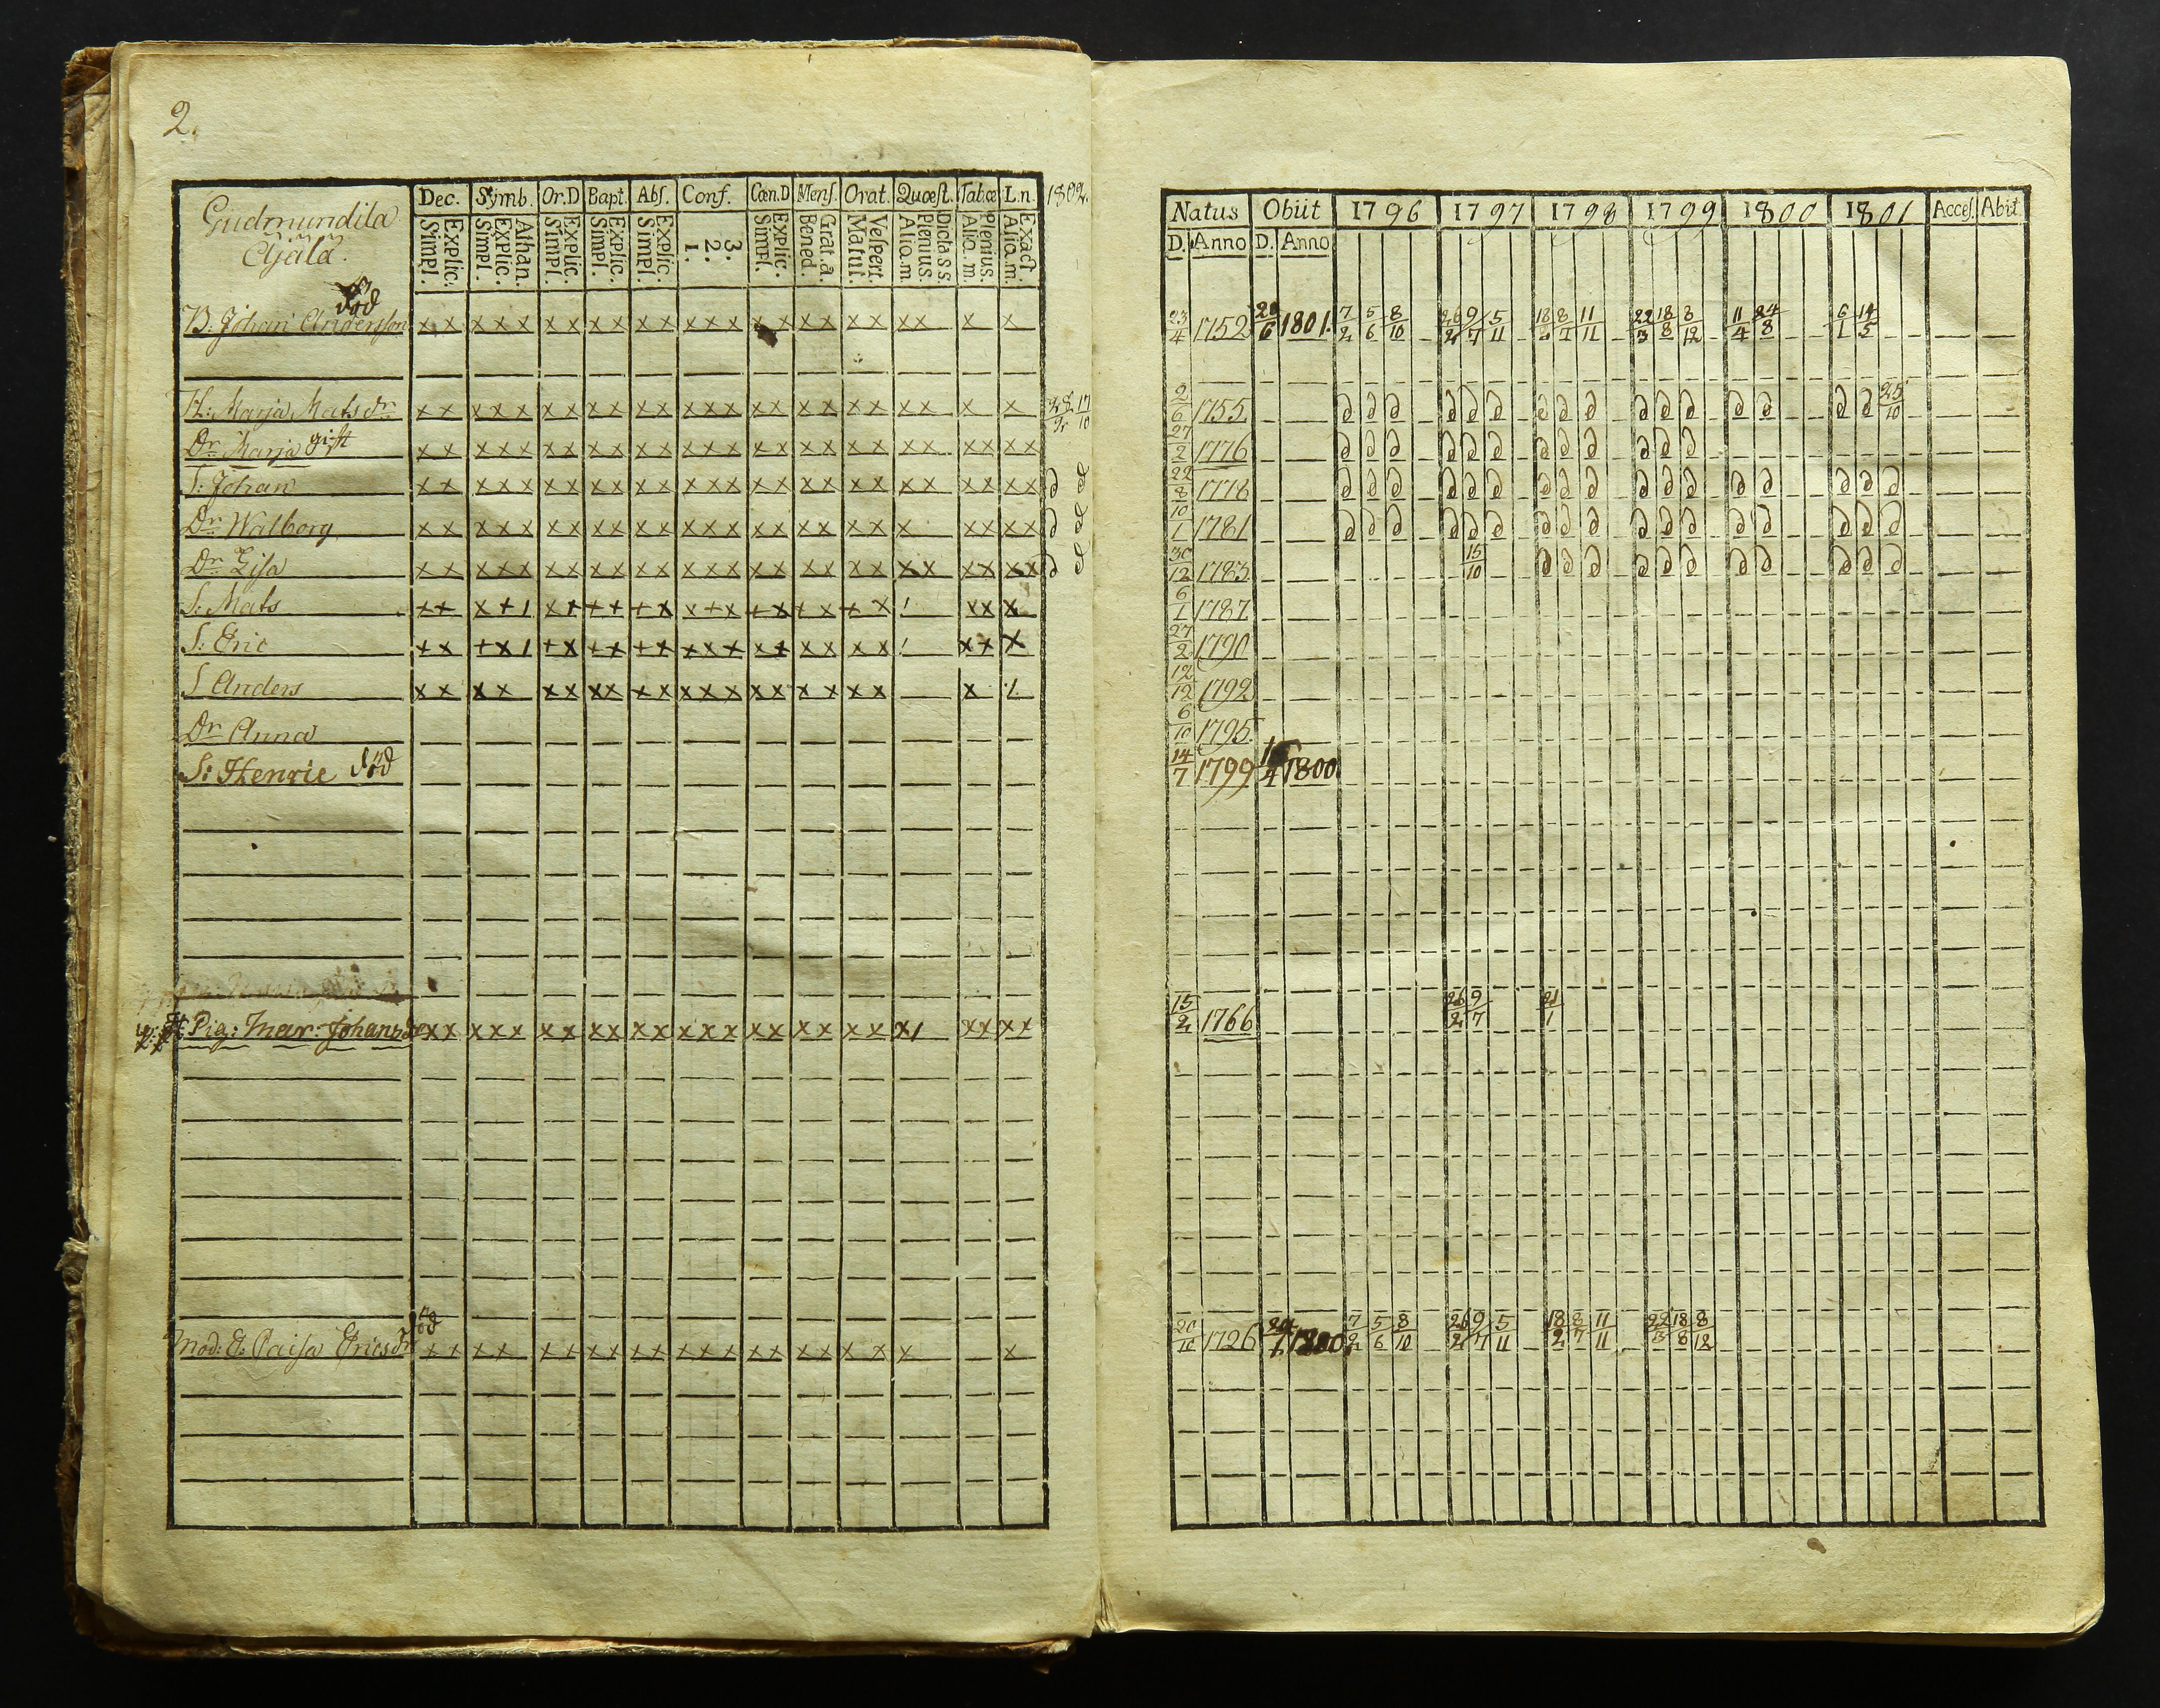 2.
Gudmundila
Äjälä.
Dec. Symb. Or.D Bapt. Abs. Conf. Cœn.D Mens. Orat. Quœst. Tabœ L.n. 1802.
Simpl. Explic. Simpl. Explic. Athan. Simpl. Explic. Simpl. Explic. Simpl. Explic. 1. 2. 3. Simpl. Explic. Bened. Grat.a. Matut. Vespert. Aliq.m Plenius. Dicta s.s. Aliq.m. Plenius. Aliq.m. Exact
död
B: Johan Andersson x x x x x x x x x x x x x x x x x x x x x x x
H: Marja Mats dr x x x x x x x x x x x x x x x x x x x x x x x
Dr Marja gift x x x x x x x x x x x x x x x x x x x x x x x x x
S: Johan x x x x x x x x x x x x x x x x x x x x x x x x x
Dr Walborg x x x x x x x x x x x x x x x x x x x x x x x x
Dr Lisa x x x x x x x x x x x x x x x x x x x x x x x x x
S: Mats
S: Eric
S Anders
Dr Anna
S: Henric död
Pig: Mar: Johans dr x x x x x x x x x x x x x x x x x x x x x 1 x x x x
död
Mod: E. Caisa Erics dr x x x x x x x x x x x x x x x x x x x x x x
Natus Obiit 1796 1797 1798 1799 1800 1801 Acces. Abiit
D. Anno D. Anno
23/4 1752 1801. 7/2 5/6 8/10 26/2 9/7 5/11 18/2 8/7 11/11 22/3 18/8 8/12 11/4 24/8 6/1 14/5
2/6 1755 25/10
27/2 1776
22/8 1778
10/1 1781
30/12 1783 15/10
6/1 1787
27/2 1790
12/12 1792
6/10 1795
14/7 1799 1800
15/2 1766 26/2 9/7 21/1
20/10 1726 1800 7/2 5/6 8/10 26/2 9/7 5/11 18/2 8/7 11/11 22/3 18/8 8/12